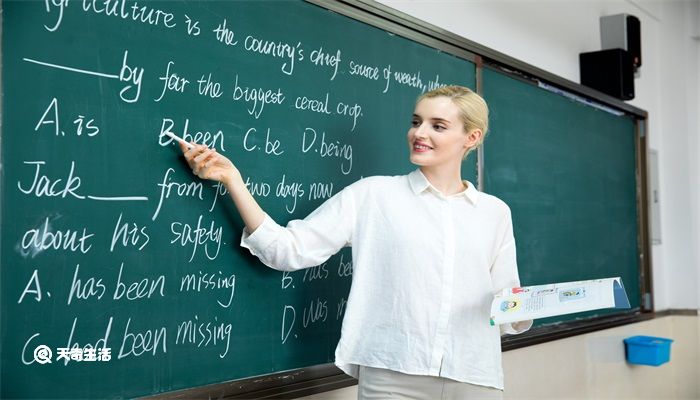 Agriculture is the country's chief source of wealth, wh
____ by far the biggest cereal crop.
A. is B. been C. be D. being
Jack ____ from for two days now
about his safety.
A. has been missing B. has been
C. had been missing D. was mis
天奇生活